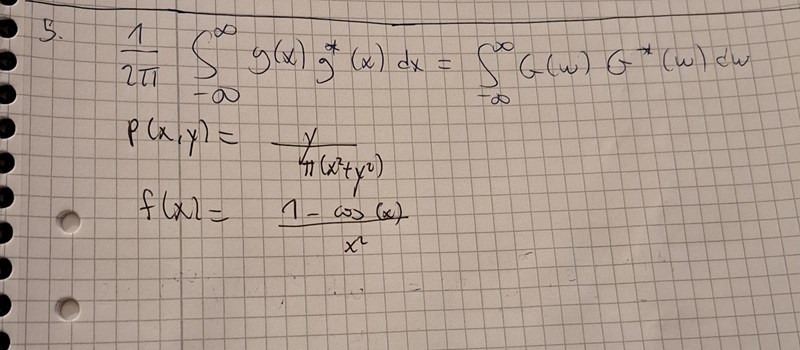 5. 1/2π ∫_{-∞}^{∞} g(x) g*(x) dx = ∫_{-∞}^{∞} G(w) G*(w) dw
P(x,y) = y/π(x²+y²)
f(x) = 1 - cos(x)/x²